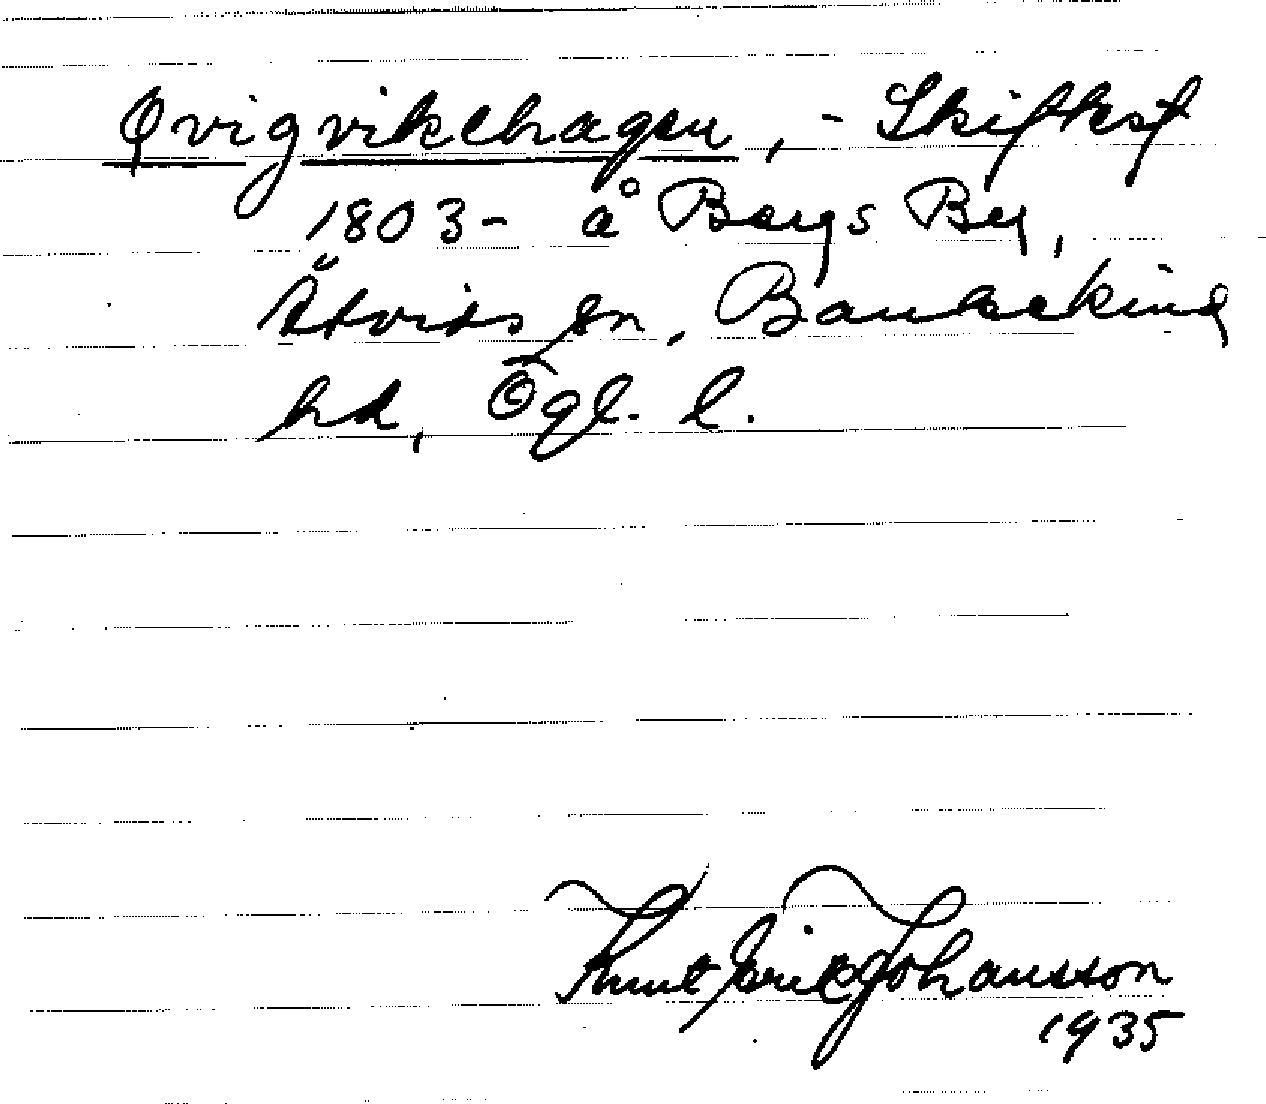 Qvigvikehagen, - Skifksf
1803 - å Bergs By,
Åtvids sn, Bankekind
hd, Ögl. l.
Knut Erik Johansson
1935